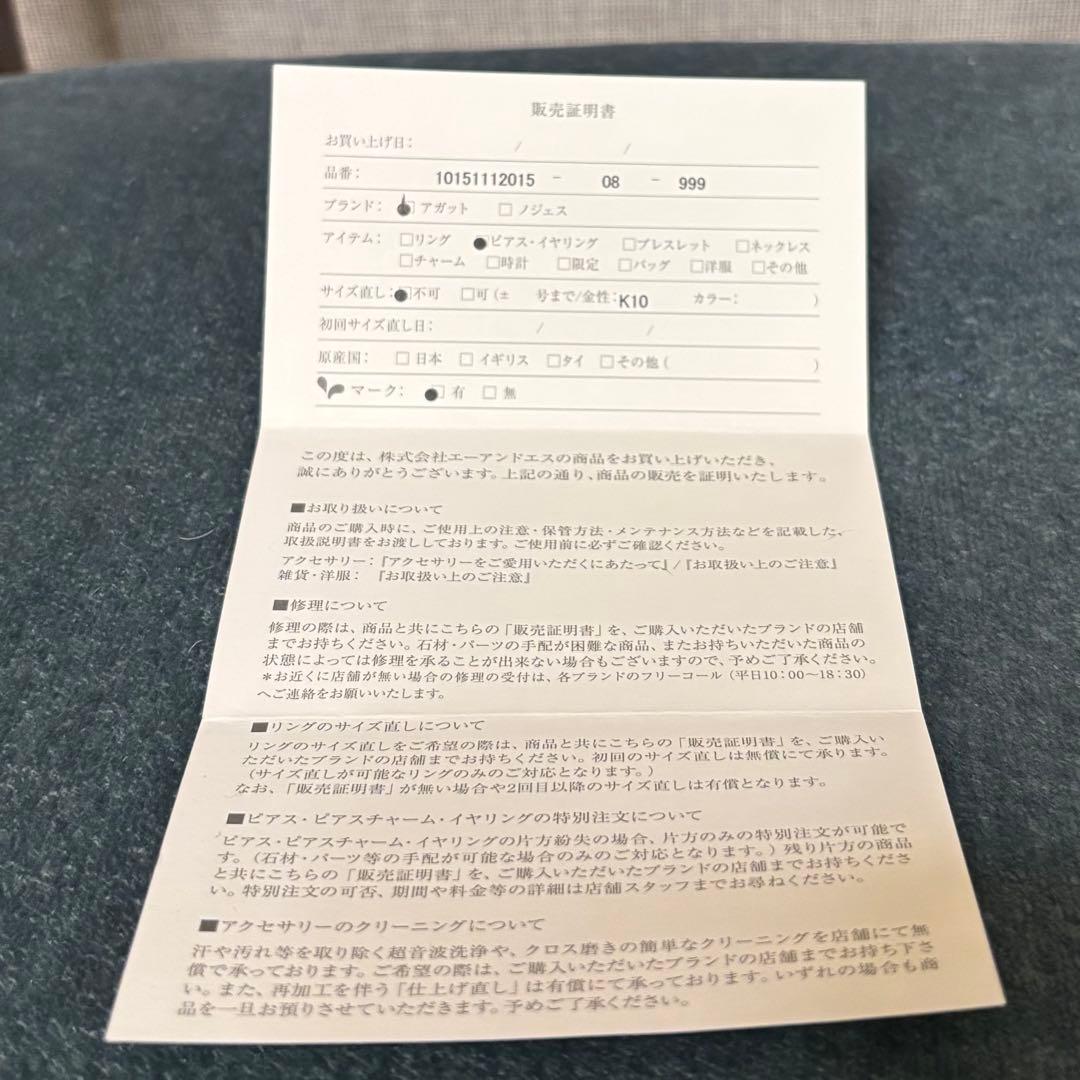 販売証明書
お買い上げ日: / /
品番: 10151112015 - 08 - 999
ブランド: ●アガット □ノジェス
アイテム: □リング ●ピアス・イヤリング □ブレスレット □ネックレス
□チャーム □時計 □限定 □バッグ □洋服 □その他
サイズ直し: ●不可 □可(± 号まで/金性:K10 カラー: )
初回サイズ直し日: / /
原産国: □日本 □イギリス □タイ □その他( )
マーク: ●有 □無
この度は、株式会社エーアンドエスの商品をお買い上げいただき、
誠にありがとうございます。上記の通り、商品の販売を証明いたします。
■お取り扱いについて
商品のご購入時に、ご使用上の注意・保管方法・メンテナンス方法などを記載した、
取扱説明書をお渡ししております。ご使用前に必ずご確認ください。
アクセサリー:『アクセサリーをご愛用いただくにあたって』/『お取扱い上のご注意』
雑貨・洋服: 『お取扱い上のご注意』
■修理について
修理の際は、商品と共にこちらの「販売証明書」を、ご購入いただいたブランドの店舗
までお持ちください。石材・パーツの手配が困難な商品、またお持ちいただいた商品の
状態によっては修理を承ることが出来ない場合もございますので、予めご了承ください。
*お近くに店舗が無い場合の修理の受付は、各ブランドのフリーコール(平日10:00〜18:30)
へご連絡をお願いいたします。
■リングのサイズ直しについて
リングのサイズ直しをご希望の際は、商品と共にこちらの「販売証明書」を、ご購入い
ただいたブランドの店舗までお持ちください。初回のサイズ直しは無償にて承ります。
(サイズ直しが可能なリングのみのご対応となります。)
なお、「販売証明書」が無い場合や2回目以降のサイズ直しは有償となります。
■ピアス・ピアスチャーム・イヤリングの特別注文について
ピアス・ピアスチャーム・イヤリングの片方紛失の場合、片方のみの特別注文が可能で
す。(石材・パーツ等の手配が可能な場合のみのご対応となります。)残り片方の商品
と共にこちらの「販売証明書」を、ご購入いただいたブランドの店舗までお持ちくださ
い。特別注文の可否、期間や料金等の詳細は店舗スタッフまでお尋ねください。
■アクセサリーのクリーニングについて
汗や汚れ等を取り除く超音波洗浄や、クロス磨きの簡単なクリーニングを店舗にて無
償で承っております。ご希望の際は、ご購入いただいたブランドの店舗までお持ち下さ
い。また、再加工を伴う「仕上げ直し」は有償にて承っております。いずれの場合も商
品を一旦お預りさせていただきます。予めご了承ください。